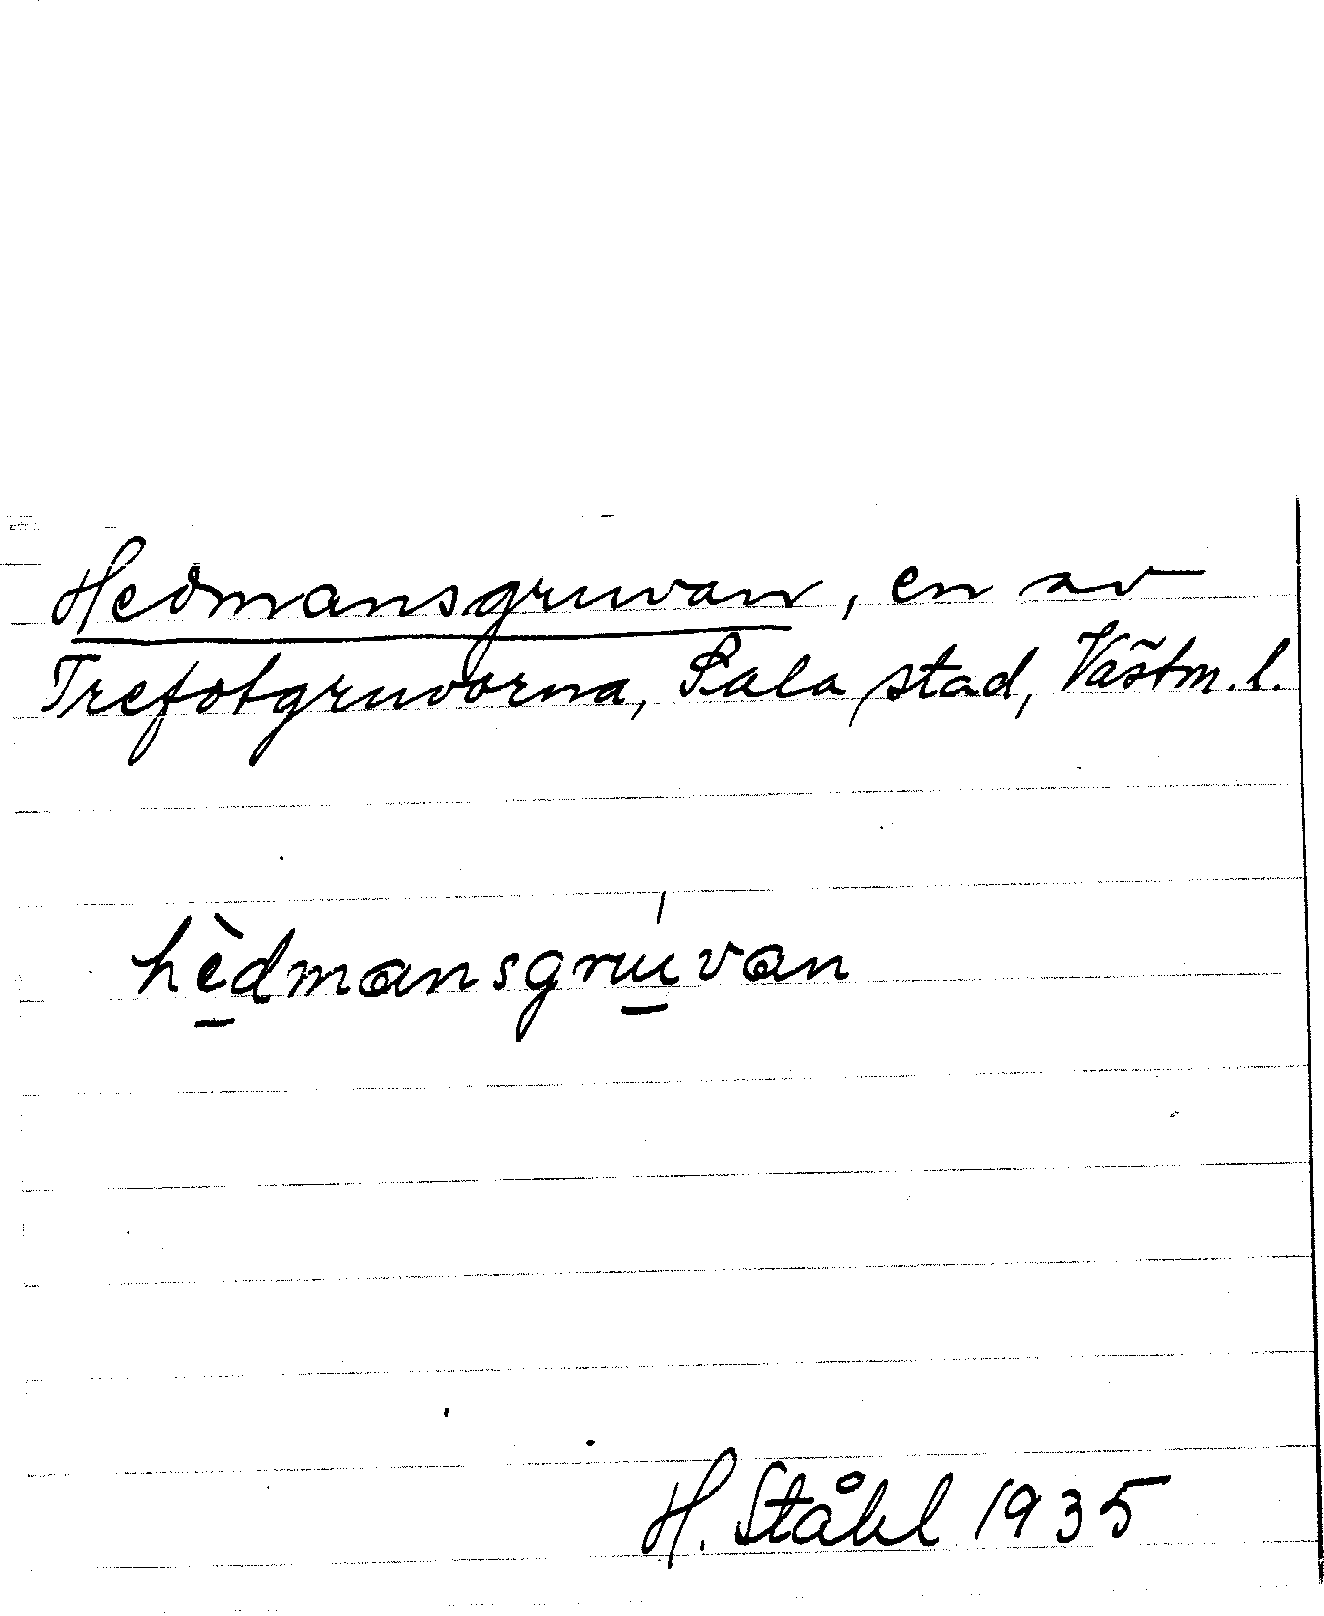 Hedmansgruvan, en av
Trefotgruvorna, Sala stad, Västm. l.
hèdmansgrúvan
H. Ståhl 1935